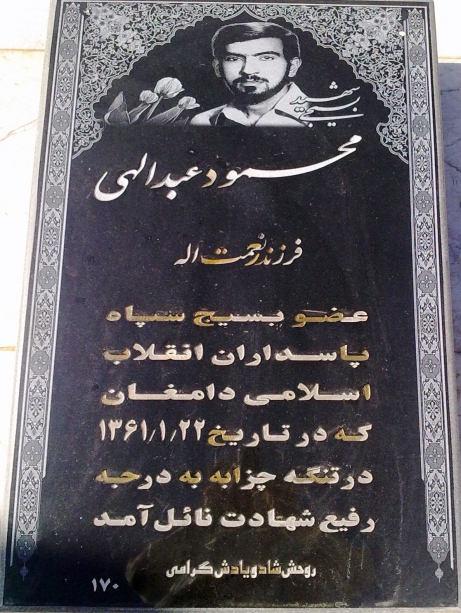 شهید
بسیجی
محمود عبدالهی
فرزند نعمت اله
عضو بسیج سپاه
پاسداران انقلاب
اسلامی دامغان
که در تاریخ ۱۳۶۱/۱/۲۲
در تنگه چزابه به درجه
رفیع شهادت نائل آمد
روحش شاد و یادش گرامی
۱۷۰